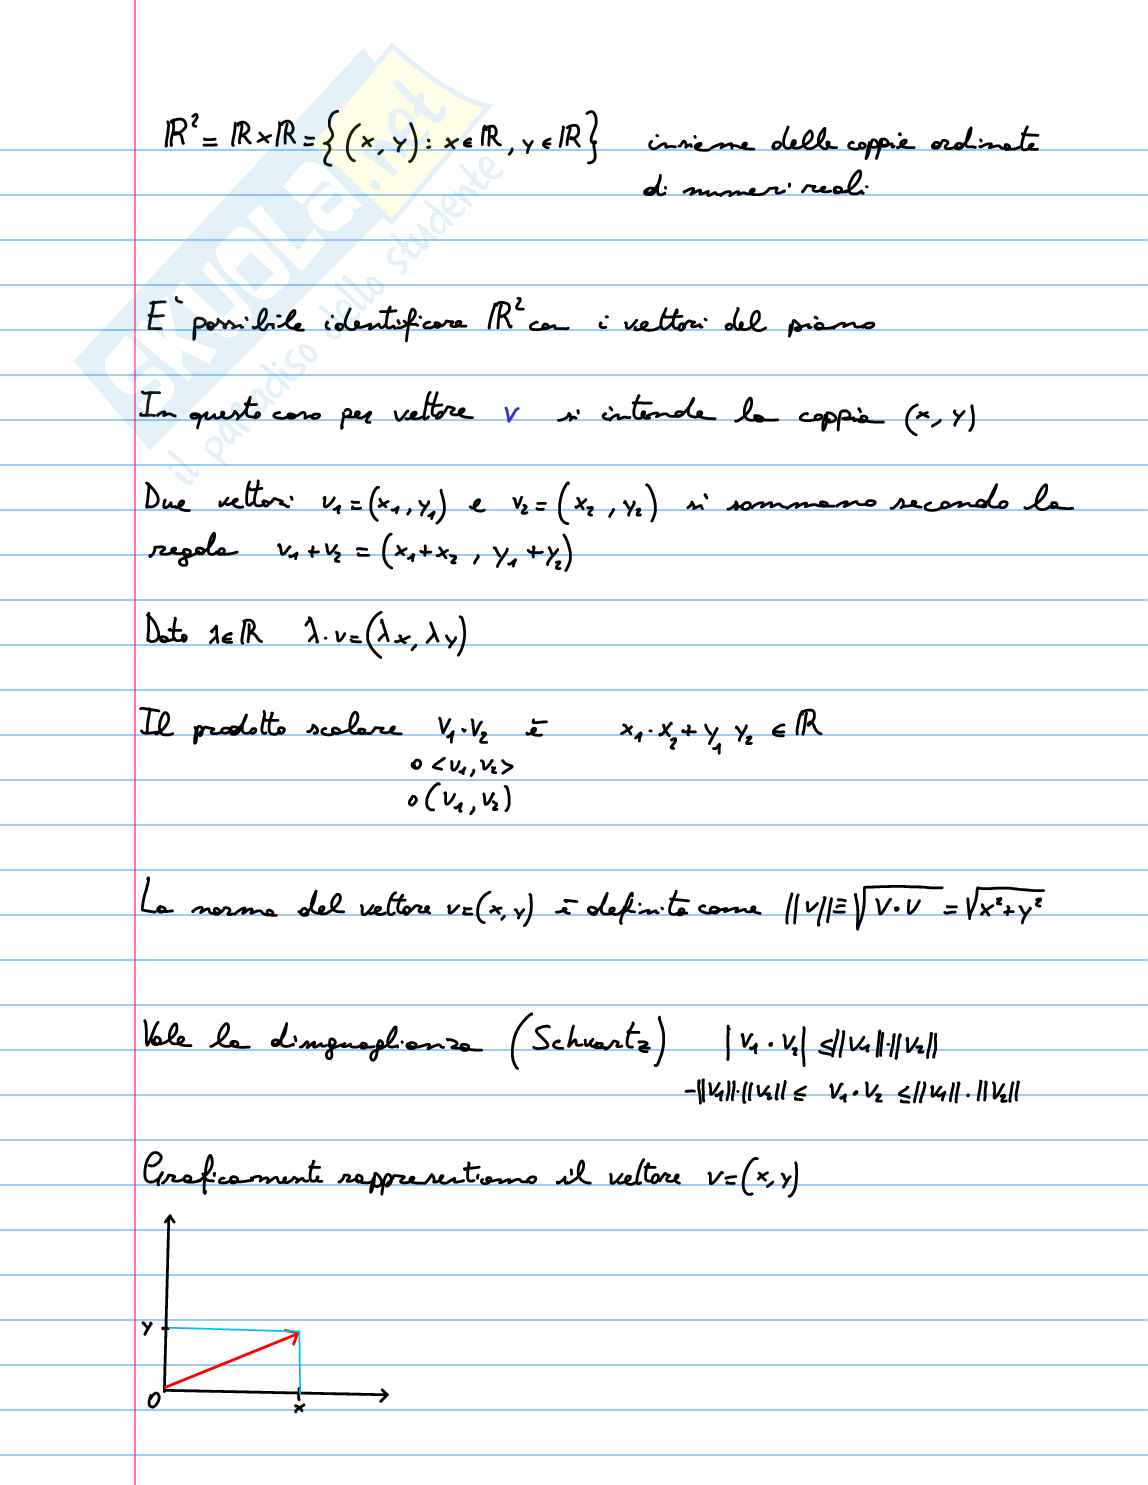 ℝ² = ℝ×ℝ = {(x, y) : x∈ℝ, y∈ℝ} insieme delle coppie ordinate
di numeri reali
E' possibile identificare ℝ² con i vettori del piano
In questo caso per vettore v si intende la coppia (x, y)
Due vettori v₁=(x₁, y₁) e v₂=(x₂, y₂) si sommano secondo la
regola v₁+v₂ = (x₁+x₂, y₁+y₂)
Dato λ∈ℝ λ·v=(λx, λy)
Il prodotto scalare v₁·v₂ è x₁·x₂+y₁ y₂ ∈ ℝ
o <v₁, v₂>
o (v₁, v₂)
La norma del vettore v=(x, y) è definita come ||v||≡√(v·v) = √(x²+y²)
Vale la disuguaglianza (Schwartz) |v₁·v₂| ≤ ||v₁||·||v₂||
-||v₁||·||v₂|| ≤ v₁·v₂ ≤ ||v₁||·||v₂||
Graficamente rappresentiamo il vettore v=(x, y)
y
O
x
SKUOLA.net
il paradiso dello studente